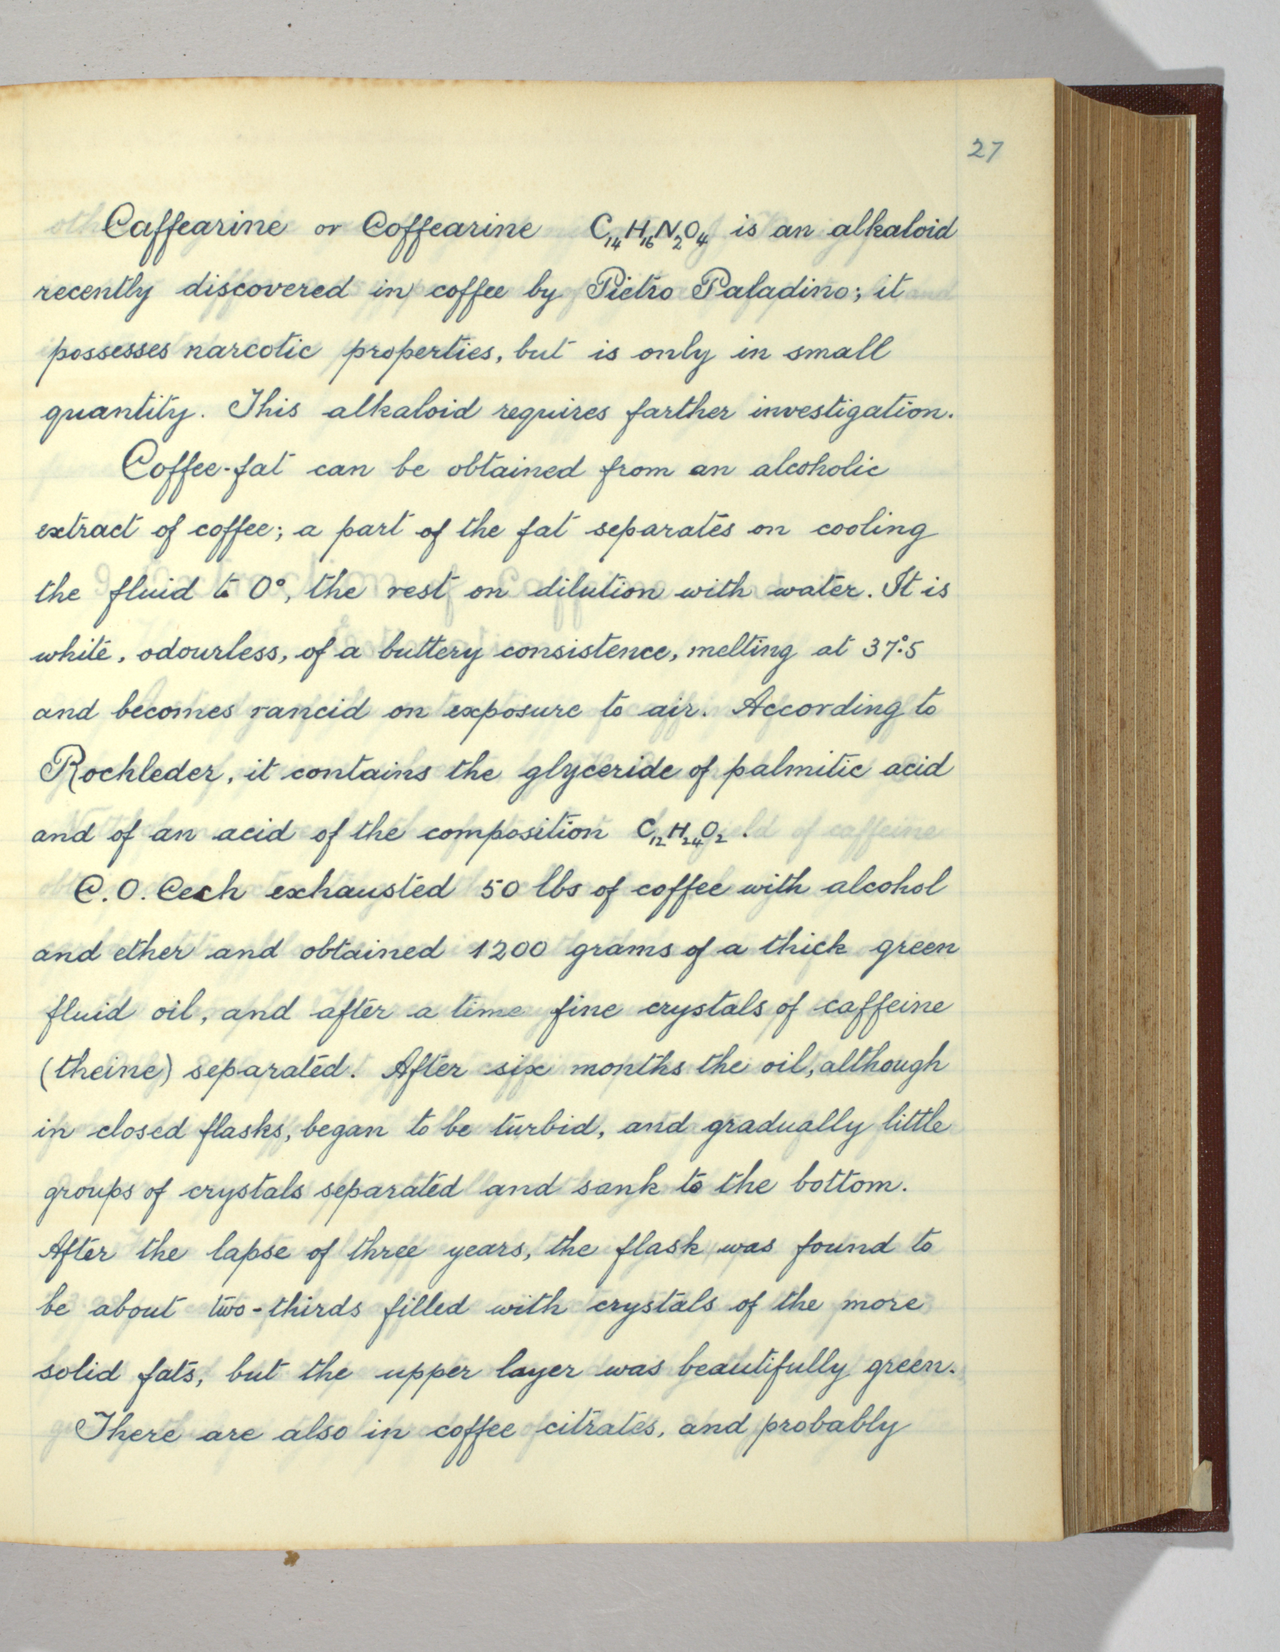 27
Caffearine or Coffearine C₁₄H₁₆N₂O₄ is an alkaloid
recently discovered in coffee by Pietro Paladino; it
possesses narcotic properties, but is only in small
quantity. This alkaloid requires farther investigation.
Coffee-fat can be obtained from an alcoholic
extract of coffee; a part of the fat separates on cooling
the fluid to 0°, the rest on dilution with water. It is
white, odourless, of a buttery consistence, melting at 37°.5
and becomes rancid on exposure to air. According to
Rochleder, it contains the glyceride of palmitic acid
and of an acid of the composition C₁₂H₂₄O₂.
C. O. Cech exhausted 50 lbs of coffee with alcohol
and ether and obtained 1200 grams of a thick green
fluid oil, and after a time fine crystals of caffeine
(theine) separated. After six months the oil, although
in closed flasks, began to be turbid, and gradually little
groups of crystals separated and sank to the bottom.
After the lapse of three years, the flask was found to
be about two-thirds filled with crystals of the more
solid fats, but the upper layer was beautifully green.
There are also in coffee citrates, and probably